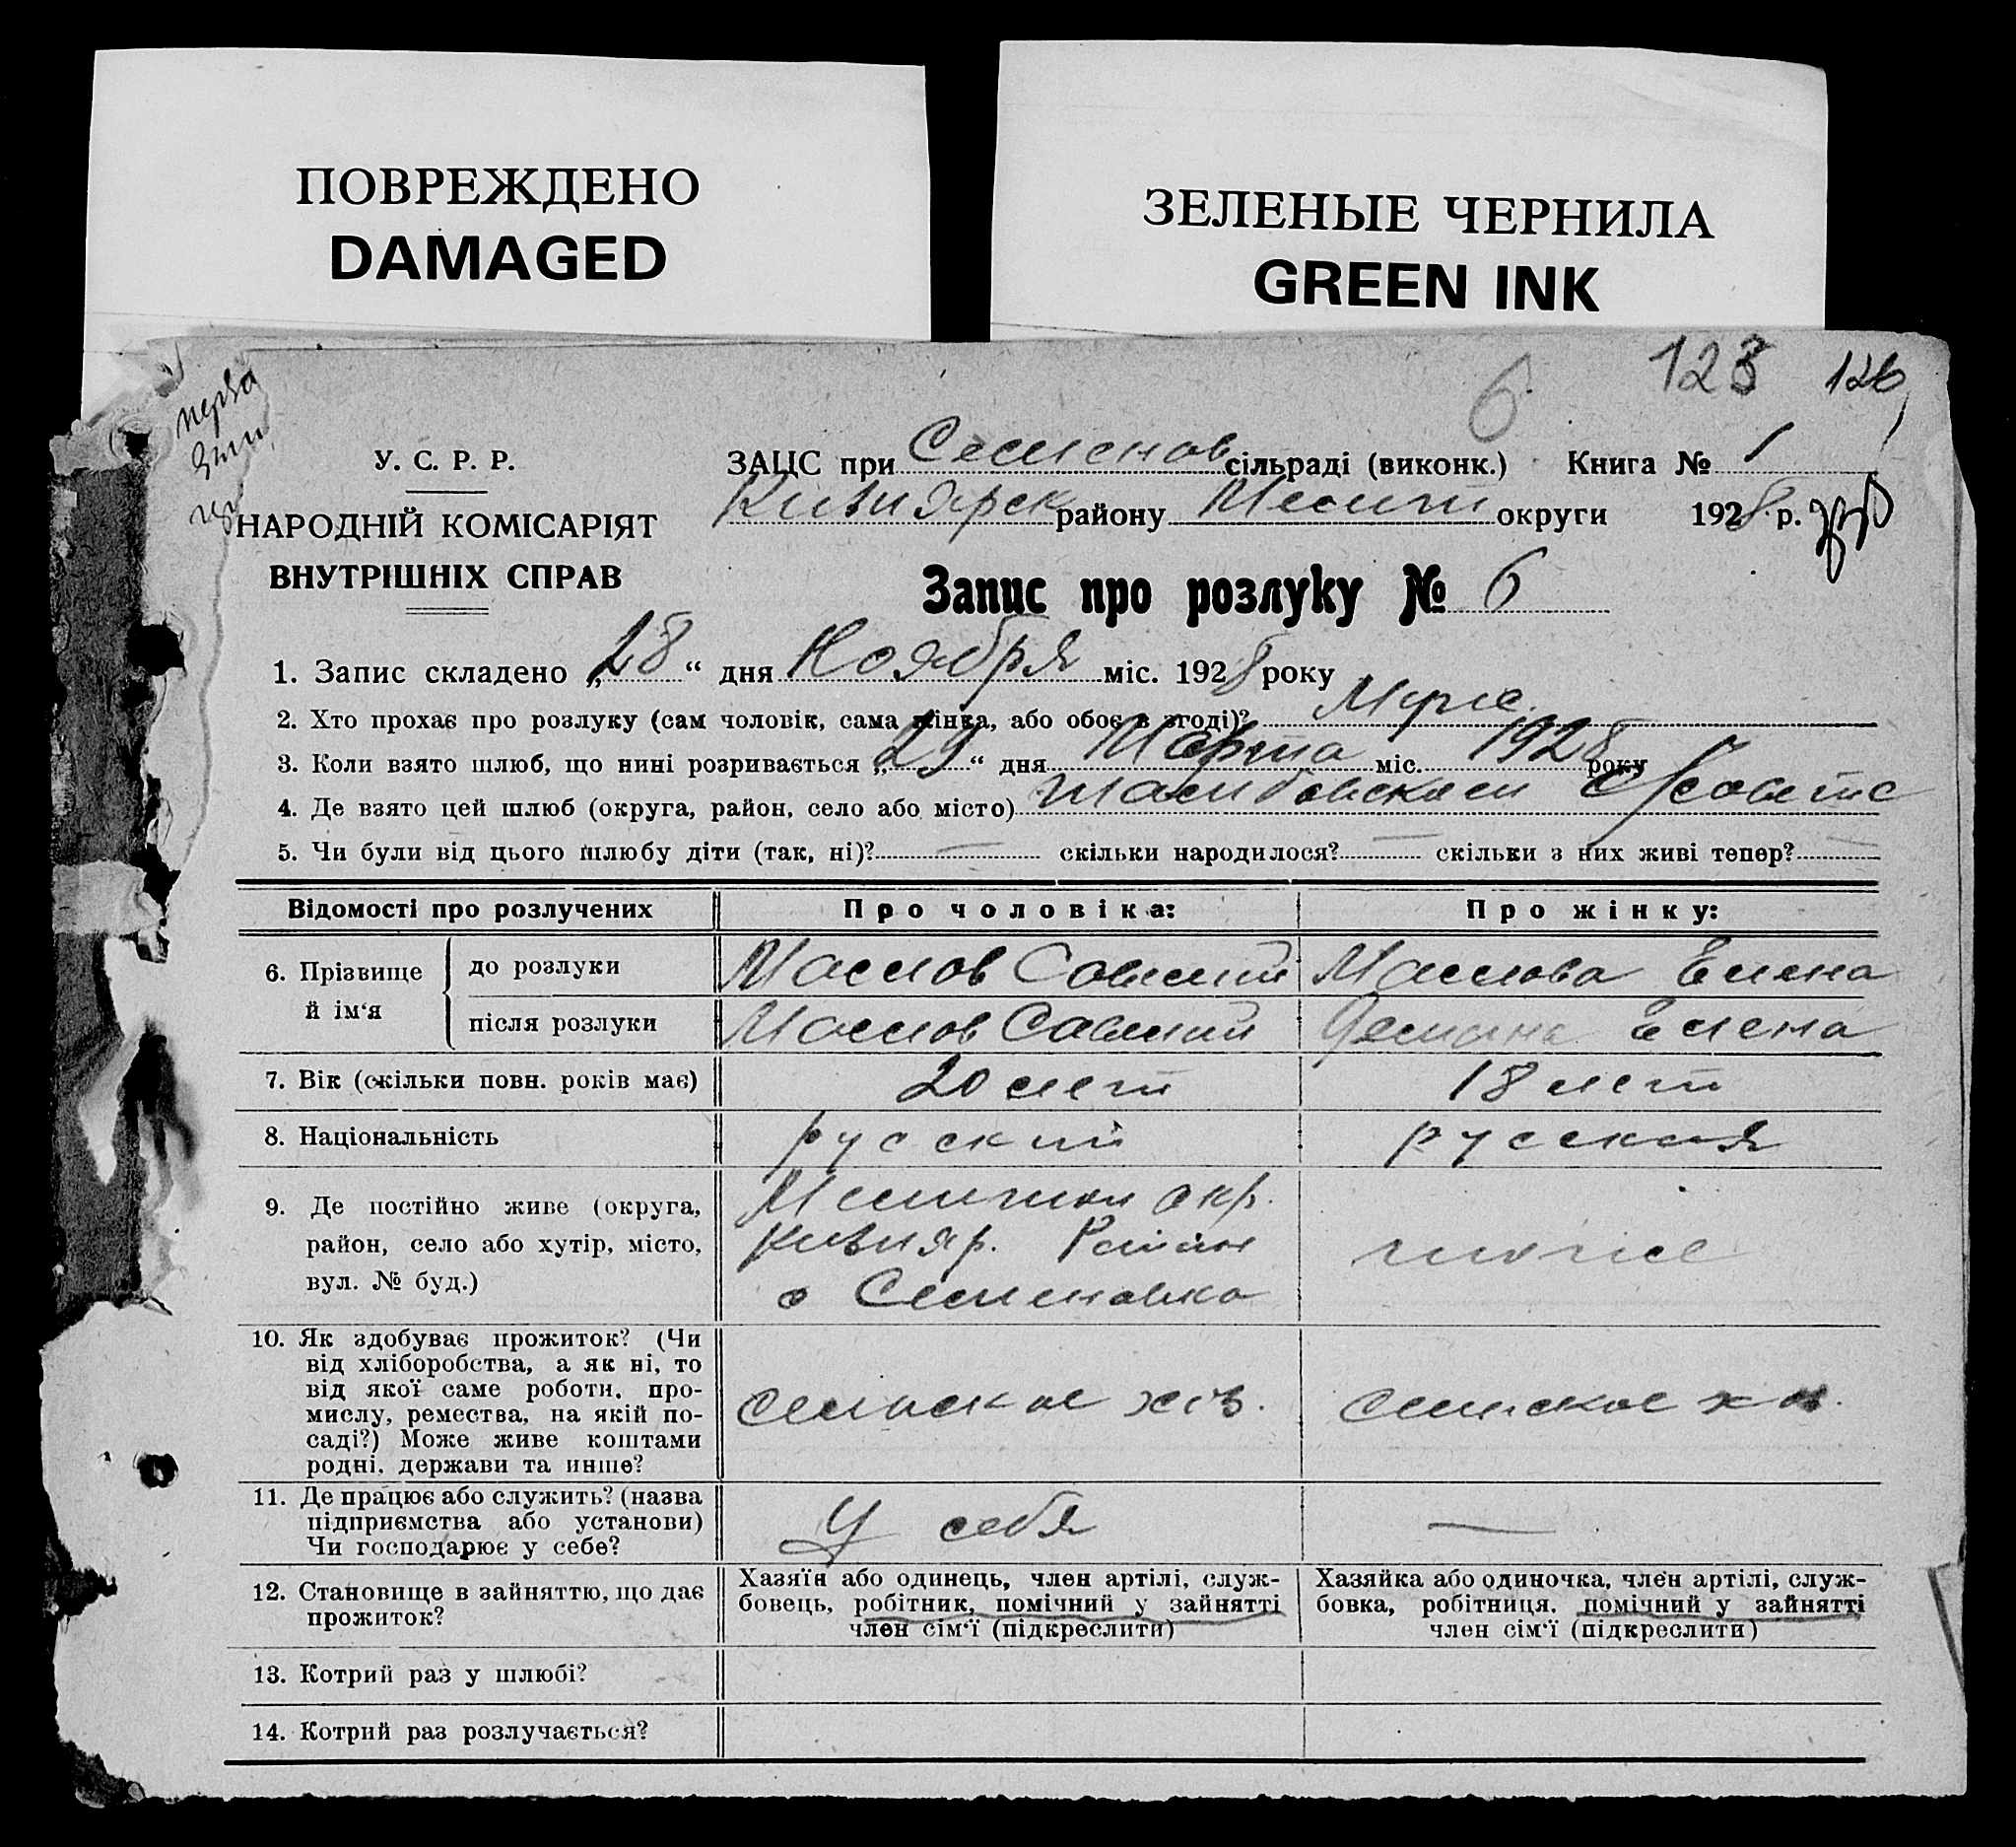 ПОВРЕЖДЕНО
DAMAGED
ЗЕЛЕНЫЕ ЧЕРНИЛА
GREEN INK
6
123 126
У. С. Р. Р.
НАРОДНІЙ КОМІСАРІЯТ
ВНУТРІШНІХ СПРАВ
ЗАЦС при Семенов сільраді (виконк.) Книга № 1
Кизиярск району Мелит округи 1928 р.
Запис про розлуку № 6
1. Запис складено „28“ дня Ноября міс. 1928 року
2. Хто прохає про розлуку (сам чоловік, сама жінка, або обоє в згоді)? Муж.
3. Коли взято шлюб, що нині розривається „29“ дня Марта міс. 1928 року
4. Де взято цей шлюб (округа, район, село або місто) С/совете
5. Чи були від цього шлюбу діти (так, ні)? — скільки народилося? — скільки з них живі тепер? —
Відомості про розлучених
Про чоловіка:
Про жінку:
6. Прізвище й ім‘я
до розлуки Маслов Савелий Маслова Елена
після розлуки Маслов Савелий Елена
7. Вік (скільки повн. років має) 20 лет 18 лет
8. Національність русский русская
9. Де постійно живе (округа,
район, село або хутір, місто,
вул. № буд.)
Мелитоп окр.
Кизияр. Район
с Семеновка
тоже
10. Як здобуває прожиток? (Чи
від хліборобства, а як ні, то
від якої саме роботи, про-
мислу, ремества, на якій по-
саді?) Може живе коштами
родні, держави та инше?
сельское хоз.
сельское хоз.
11. Де працює або служить? (назва
підприємства або установи)
Чи господарює у себе?
У себя
—
12. Становище в зайняттю, що дає
прожиток?
Хазяїн або одинець, член артілі, служ-
бовець, робітник, помічний у зайнятті
член сім‘ї (підкреслити)
Хазяйка або одиночка, член артілі, служ-
бовка, робітниця, помічний у зайнятті
член сім‘ї (підкреслити)
13. Котрий раз у шлюбі?
14. Котрий раз розлучається?